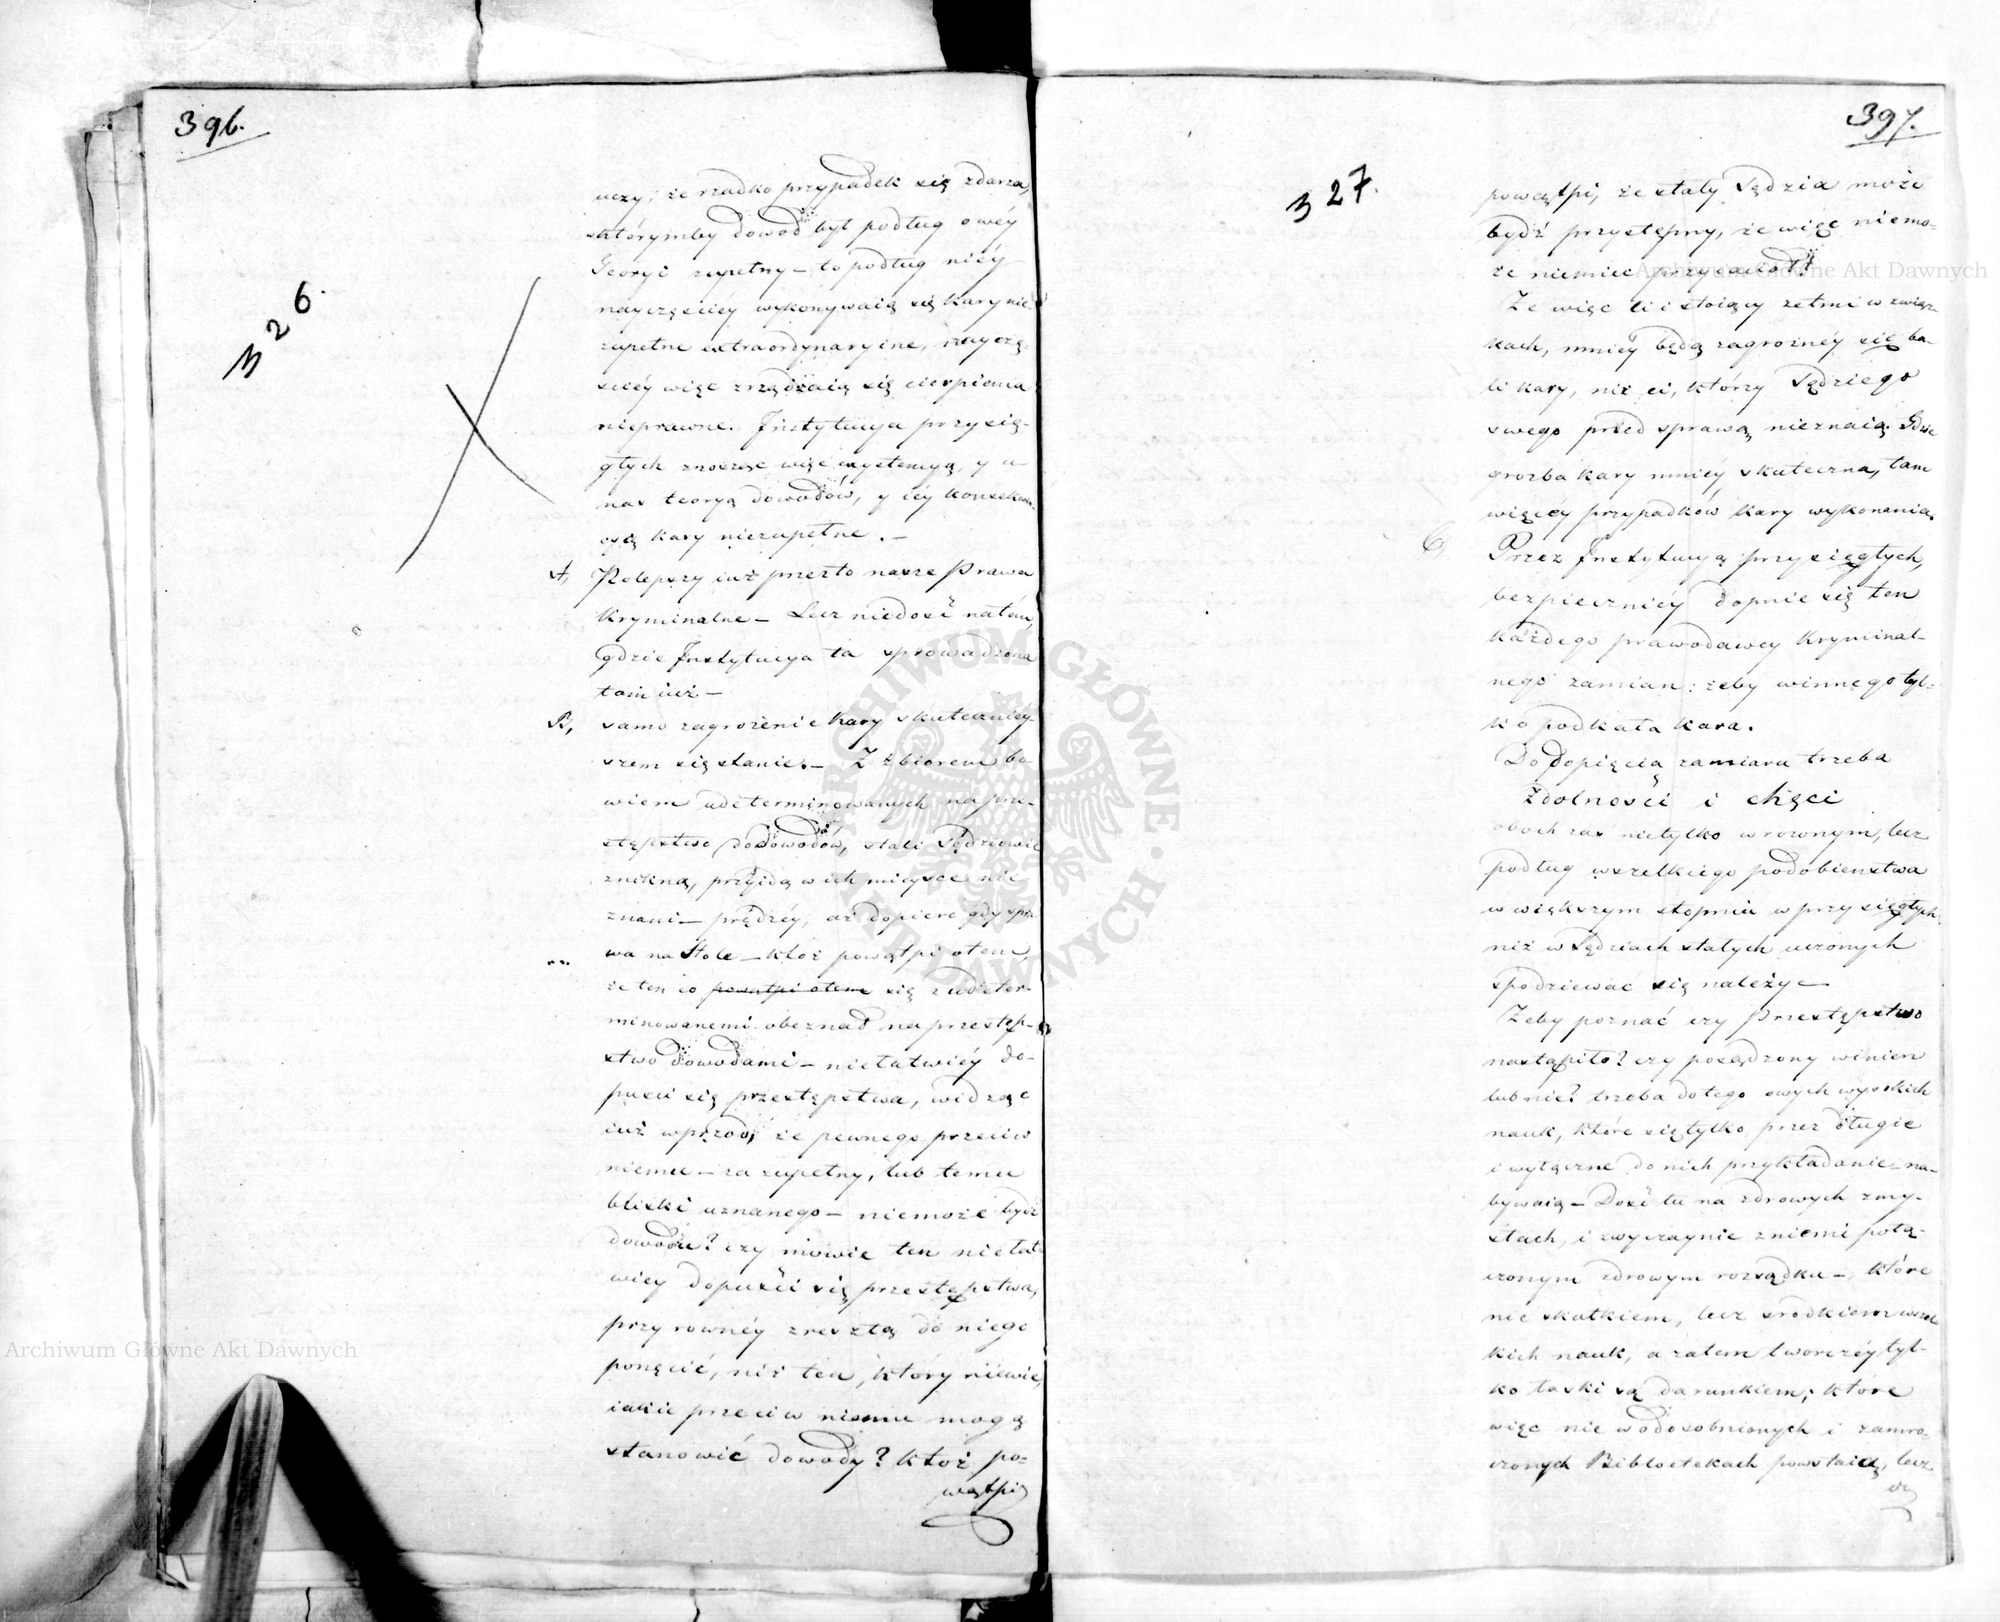 396.
326.
uczy; że rzadko przypadek się zdarza,
wktórymby dowod był podług owéy
Teoryi zupełny – to podług niéy
nayczęściey wykonywaią się kary nie
zupełne extraordynaryine, nayczę-
sciéy więc zrządzaią się cierpienia
nieprawne. Instytucya przysię-
głych znosząc więc exystencyą, y u
nas teoryą dowodów, y iéy konsekwen-
cyą kary niezupełne. –
A, Polepszy iuż przezto nasze Prawa
kryminalne – Lecz niedość natém,
gdzie Instytucya ta sprowadzona
tam iuż –
B, samo zagrożenie kary skuteczniey-
szem się stanie. – Z zbiorem bo
wiem udeterminowanych na prze-
stępstwo dowodów, stali Sędziowie
znikną, przyidą w ich mieysce nie
znani – prędzéy, aż dopiero gdy spra
wa na Stole – ktoż powątpi otem,
że ten co powątpi otem się z udeter-
minowanemi obeznał na przestęp-
stwo dowodami – nie łatwiéy do-
puści się przestępstwa, widząc
iuż wprzód, że pewnego przeciw
niemu – za zupełny, lub temu
bliski uznanego – niemoże bydź
dowodu? czy mowię ten nie łat-
wiey dopuści się przestępstwa,
przy rownéy zresztą do niego
ponęcie, niż ten, który niewie,
iakie przeciw niemu mogą
stanowić dowody? ktoż po-
wątpi
397.
327.
powątpi, że stały Sędzia może
bydź przystępny, że więc niemo-
że niemiec przyiaciół?
Że więc ci i stoiący zetmi w związ-
kach, mniéy będą zagrożnéy się ba-
li kary, niż ci, którzy Sędziego
swego przed sprawą nieznaią. Gdzie
grozba kary mniéy skuteczna, tam
więcéy przypadków kary wykonania.
C, Przez Instytucyą przysięgłych,
bezpieczniéy dopnie się ten
każdego prawodawcy kryminal-
nego zamiar: żeby winnego tyl-
ko podkała kara.
Do dopięcia zamiaru trzeba
Zdolności i chęci
oboch zaś nietylko w rownym, lecz
podług wszelkiego podobienstwa
w większym stopniu w przysięgłych
niż w Sędziach stałych uczonych
spodziewać się należy –
Żeby poznać czy Przestępstwo
nastąpiło? czy posądzony winien
lub nie? trzeba do tego owych wysokich
nauk, które się tylko przez długie
i wyłączne do nich przykładanie na-
bywaią – Dość tu na zdrowych zmy-
słach, i zwyczaynie z niemi połą-
czonym zdrowym rozsądku –, które
nie skutkiem, lecz srodkiem wszel
kich nauk, a zatem tworczéy tyl-
ko łaski są darunkiem; które
więc nie w odosobnionych i zamro-
czonych Bibliotekach powstaią, lecz